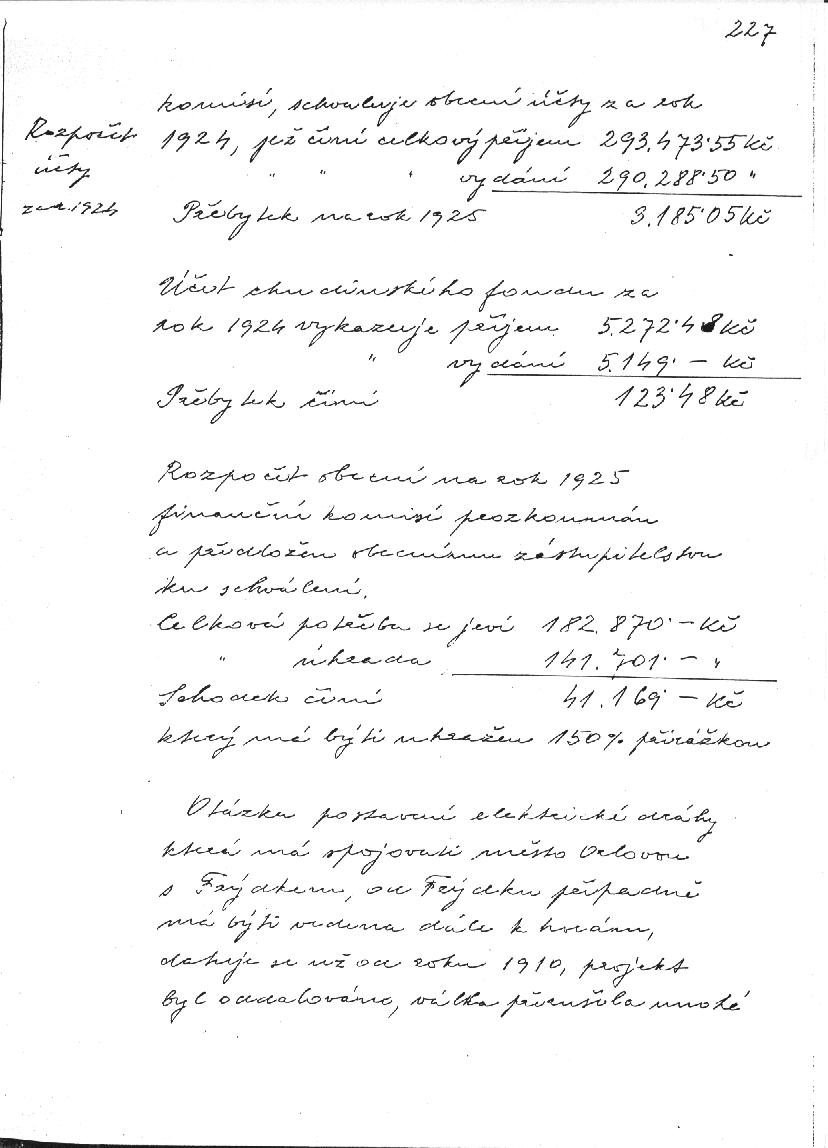 227
komisí, schvaluje obecní účty za rok
Rozpočit 1924, jež činí celkový příjem 293.473·55 Kč
účty " " " vydání 290.288·50 "
za r. 1924 Přebytek na rok 1925 3.185·05 Kč
Účet chudinského fondu za
rok 1924 vykazuje příjem 5.272·48 Kč
" vydání 5.149·— Kč
Přebytek činí 123·48 Kč
Rozpočit obecní na rok 1925
finanční komisí prozkoumán
a předložen obecnímu zástupitelstvu
ku schválení.
Celková potřeba se jeví 182.870·— Kč
" úhrada 141.701·— "
Schodek činí 41.169·— Kč
který má býti uhražen 150% přirážkou
Otázka postavení elektrické dráhy
která má spojovati město Orlovou
s Frýdkem, od Frýdku případně
má býti vedena dále k horám,
datuje se už od roku 1910, projekt
byl oddalováno, válka přerušila mnohé